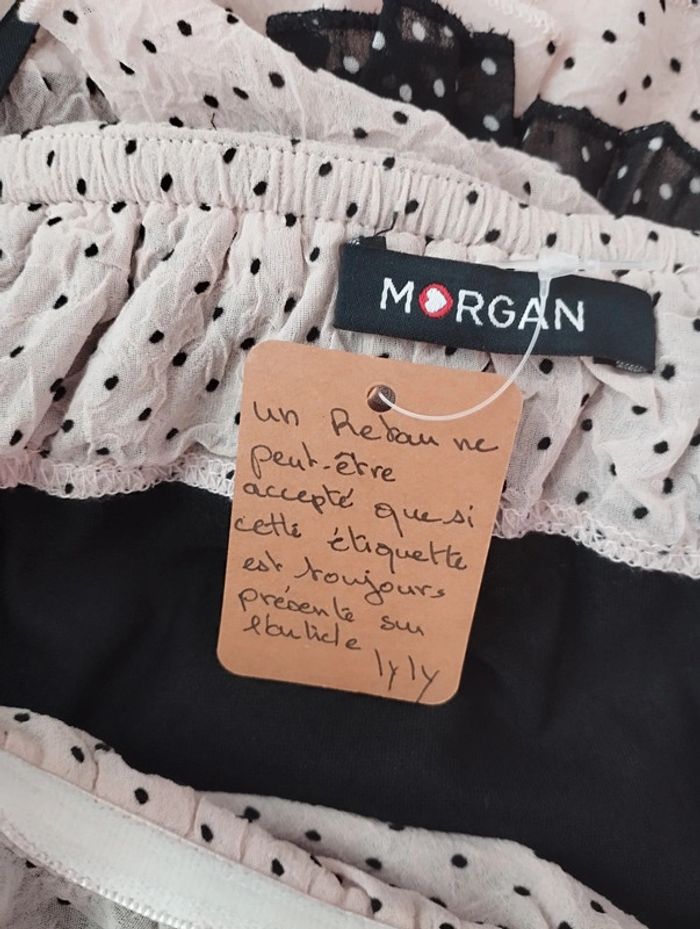 MORGAN
un Retour ne
peut-être
accepté que si
cette étiquette
est toujours
présente sur
l'article
lyly